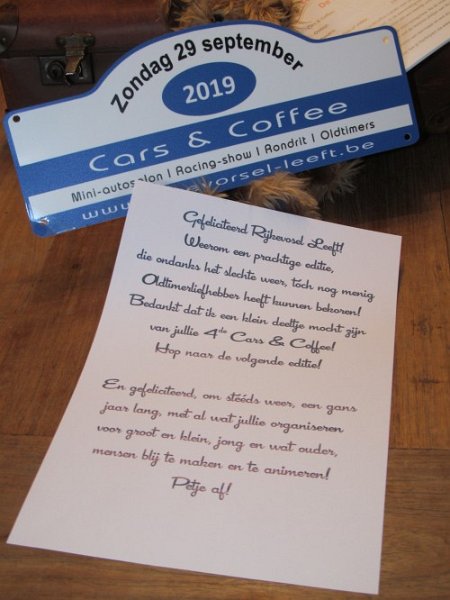 Zondag 29 september
2019
Cars & Coffee
Mini-autosalon | Racing-show | Rondrit | Oldtimers
evorsel-leeft.be
Gefeliciteerd Rijkevosel Leeft!
Weerom een prachtige editie,
die ondanks het slechte weer, toch nog menig
Oldtimerliefhebber heeft kunnen bekoren!
Bedankt dat ik een klein deeltje mocht zijn
van jullie 4de Cars & Coffee!
Hop naar de volgende editie!
En gefeliciteerd, om stééds weer, een gans
jaar lang, met al wat jullie organiseren
voor groot en klein, jong en wat ouder,
mensen blij te maken en te animeren!
Petje af!